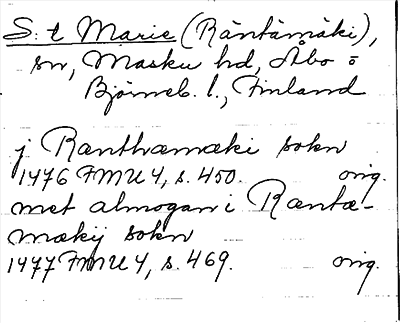 S:t Marie (Räntämäki),
sn, Masku hd, Åbo o
Björneb. l., Finland
j Rænthæmæki sokn
1476 FMU 4, s. 450. orig.
met almogan i Ræntæ-
mækij sokn
1477 FMU 4, s. 469. orig.